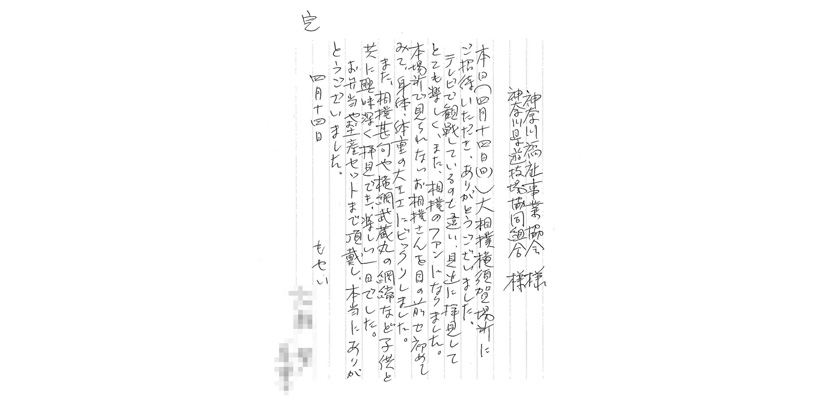 神奈川福祉事業協会 様
神奈川県遊技場協同組合 様
本日(四月十四日(日))大相撲横須賀場所に
ご招待いただき、ありがとうございました。
テレビで観戦しているのと違い、身近に拝見して
とても楽しく、また、相撲のファンになりました。
本場所で見られないお相撲さんを目の前で初めて
みて、身体・体重の大きさにビックリしました。
また、相撲甚句や横綱武蔵丸の綱締など子供と
共に興味深く拝見でき、楽しい一日でした。
お弁当や土産セットまで頂戴し、本当にありが
とうございました。
四月十四日